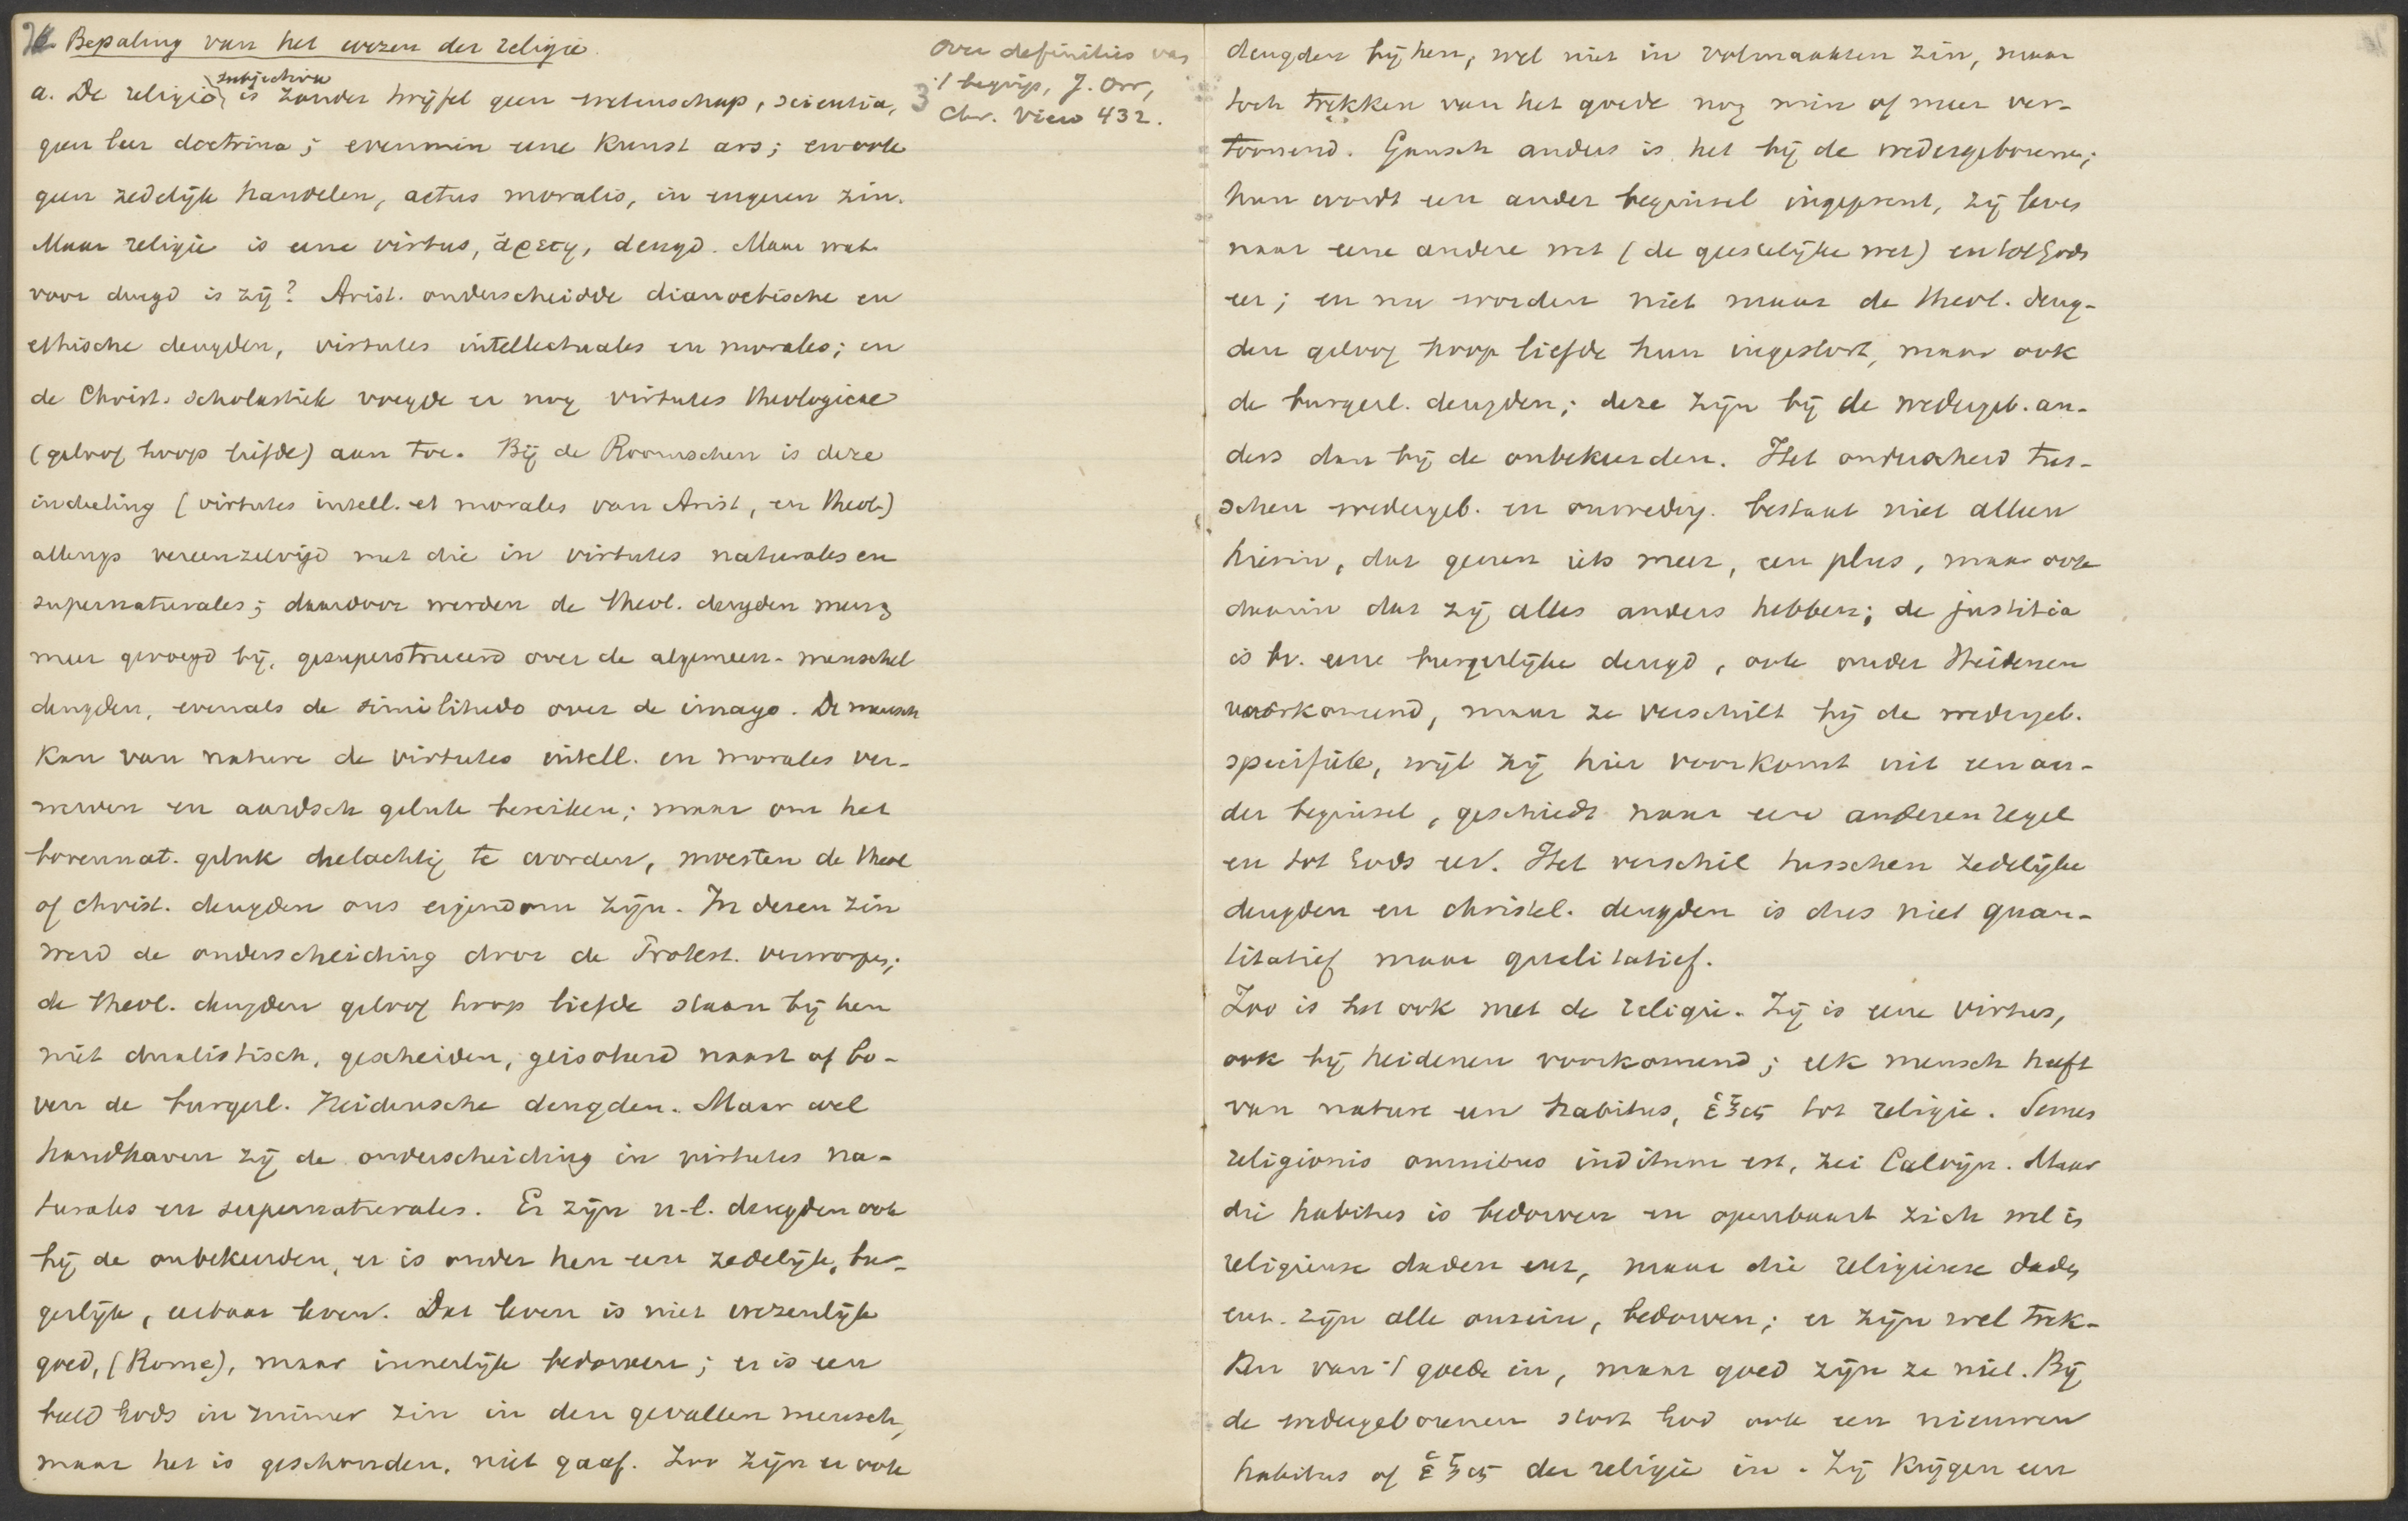 Bepaling van het wezen der religie.
a. De religio, subjective is zonder twijfel geen wetenschap, scientia,
geen leer doctrina; evenmin eene kunst ars; en ook
geen zedelijk handelen, actus moralis, in engeren zin.
Maar religie is eene virtus, ἀρετη, deugd. Maar wat
voor deugd is zij? Arist. onderscheidde dianoetische en
ethische deugden, virtutes intellectuales en morales; en
de Christ. scholastiek voegde er nog virtutes theologicae
(geloof hoop liefde) aan toe. Bij de Roomschen is deze
indeeling (virtutes intell. et morales van Arist, en theol)
allengs vereenzelvigd met die in virtutes naturales en
supernaturales; daardoor werden de theol. deugden meer
meer gevoegd bij, gesuperstrueerd over de algemeen-menschel
deugden, evenals de similitudo over de imago. De mensch
kan van nature de virtutes intell. en morales ver-
werven en aardsch geluk bereiken; maar om het
bovennat. geluk deelachtig te worden, moesten de theol
of christ. deugden ons eigendom zijn. In dezen zin
werd de onderscheiding door de Protest. verworpen;
de theol. deugden geloof hoop liefde staan bij hen
niet dualistisch, gescheiden, geisoleerd naast of bo-
ven de burgerl. heidensche deugden. Maar wel
handhaven zij de onderscheiding in virtutes na-
turales en supernaturales. Er zijn n-l. deugden ook
bij de onbekeerden, er is onder hen een zedelijk, bur-
gerlijk, eerbaar leven. Dat leven is niet wezenlijk
goed, (Rome), maar innerlijk bedorven; er is een
beeld Gods in ruimer zin in den gevallen mensch,
maar het is geschonden, niet gaaf. Zoo zijn er ook
over definities van
't begrip, J. Orr,
Chr. View 432.
deugden bij hen, wel niet in volmaakten zin, maar
toch trekken van het goede nog min of meer ver-
toonend. Gansch anders is het bij de wedergeborenen;
hun wordt een ander beginsel ingeprent, zij leven
naar eene andere wet (de geestelijke wet) en tot Gods
eer; en nu worden niet maar de theol. deug-
den geloof hoop liefde hun ingestort, maar ook
de burgerl. deugden; deze zijn bij de wedergeb. an-
ders dan bij de onbekeerden. Het onderscheid tus-
schen wedergeb. en onwederg. bestaat niet alleen
hierin, dat genen iets meer, een plus, maar ook
daarin dat zij alles anders hebben; de justitia
is bv. eene burgerlijke deugd, ook onder Heidenen
voorkomend, maar ze verschilt bij de wedergeb.
specifiek, wijl zij hier voorkomt uit een an-
der beginsel, geschiedt naar een anderen regel
en tot Gods eer. Het verschil tusschen zedelijke
deugden en christel. deugden is dus niet quan-
titatief maar qualitatief.
Zoo is het ook met de religie. Zij is eene virtus,
ook bij heidenen voorkomend; elk mensch heeft
van nature een habitus, ἑξις tot religie. Semen
religionis omnibus inditum est, zei Calvijn. Maar
die habitus is bedorven en openbaart zich wel in
religieuse daden enz, maar die religieuse daden
enz. zijn alle onrein, bedorven; er zijn wel trek-
ken van 't goede in, maar goed zijn ze niet. Bij
de wedergeborenen stort God ook een nieuwen
habitus of ἑξις der religie in. Zij krijgen een